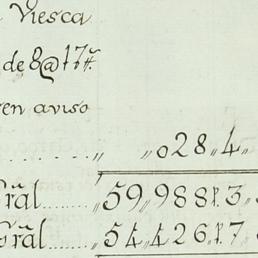 Viesca
de 8@17 ℔.
en aviso
........ „ „028„4„
ral........ „59„988.3„
ral........ „54„426.7„8